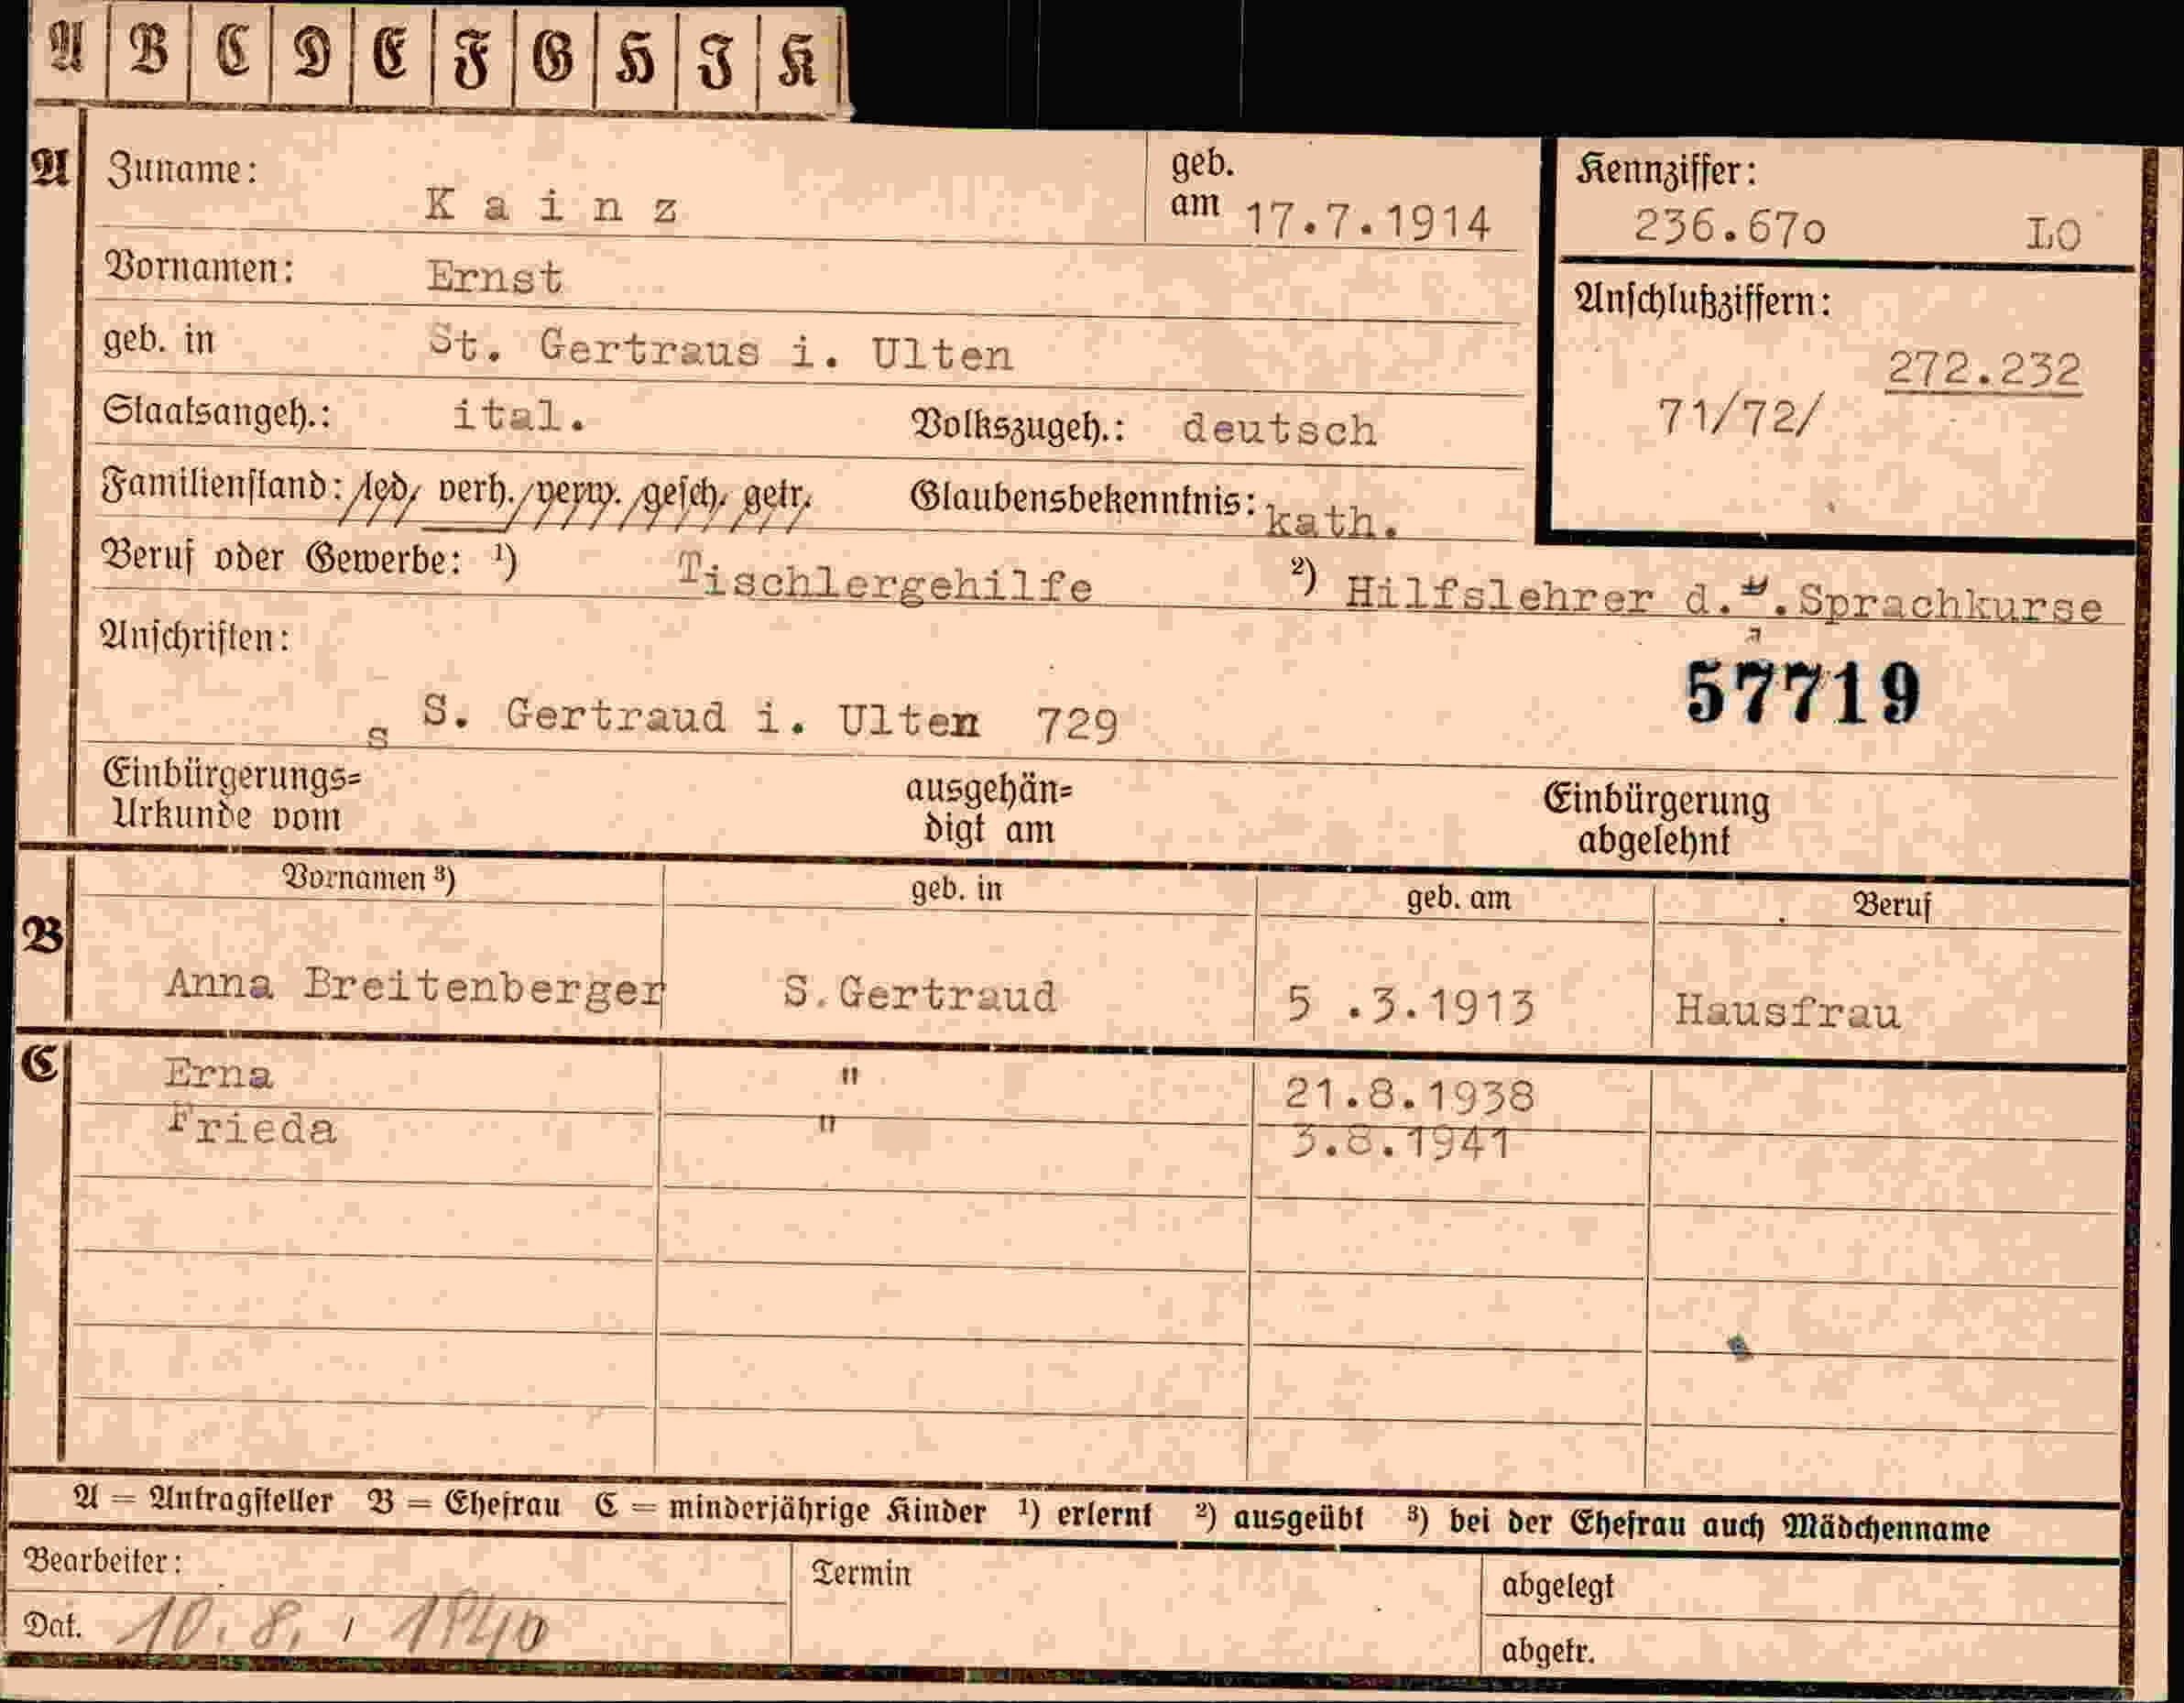 A B C D E F G H I K
A Zuname: K a i n z geb. am 17.7.1914
Kennziffer: 236.67o LO
Vornamen: Ernst
Anschlußziffern:
geb. in St. Gertraus i. Ulten
272.232
71/72/
Staatsangeh.: ital. Volkszugeh.: deutsch
Familienstand: led. verh. verw. gesch. getr. Glaubensbekenntnis: kath.
Beruf oder Gewerbe: ¹) Tischlergehilfe ²) Hilfslehrer d. .Sprachkurse
Anschriften:
57719
s S. Gertraud i. Ulten 729
Einbürgerungs=
Urkunde vom
ausgehän=
digt am
Einbürgerung
abgelehnt
Vornamen ³) geb. in geb. am Beruf
B Anna Breitenberger S.Gertraud 5 .3.1913 Hausfrau
C Erna " 21.8.1938
Frieda " 3.8.1941
A = Antragsteller B = Ehefrau C = minderjährige Kinder ¹) erlernt ²) ausgeübt ³) bei der Ehefrau auch Mädchenname
Bearbeiter: Termin abgelegt
Dat. 10.8. / 1940
abgetr.